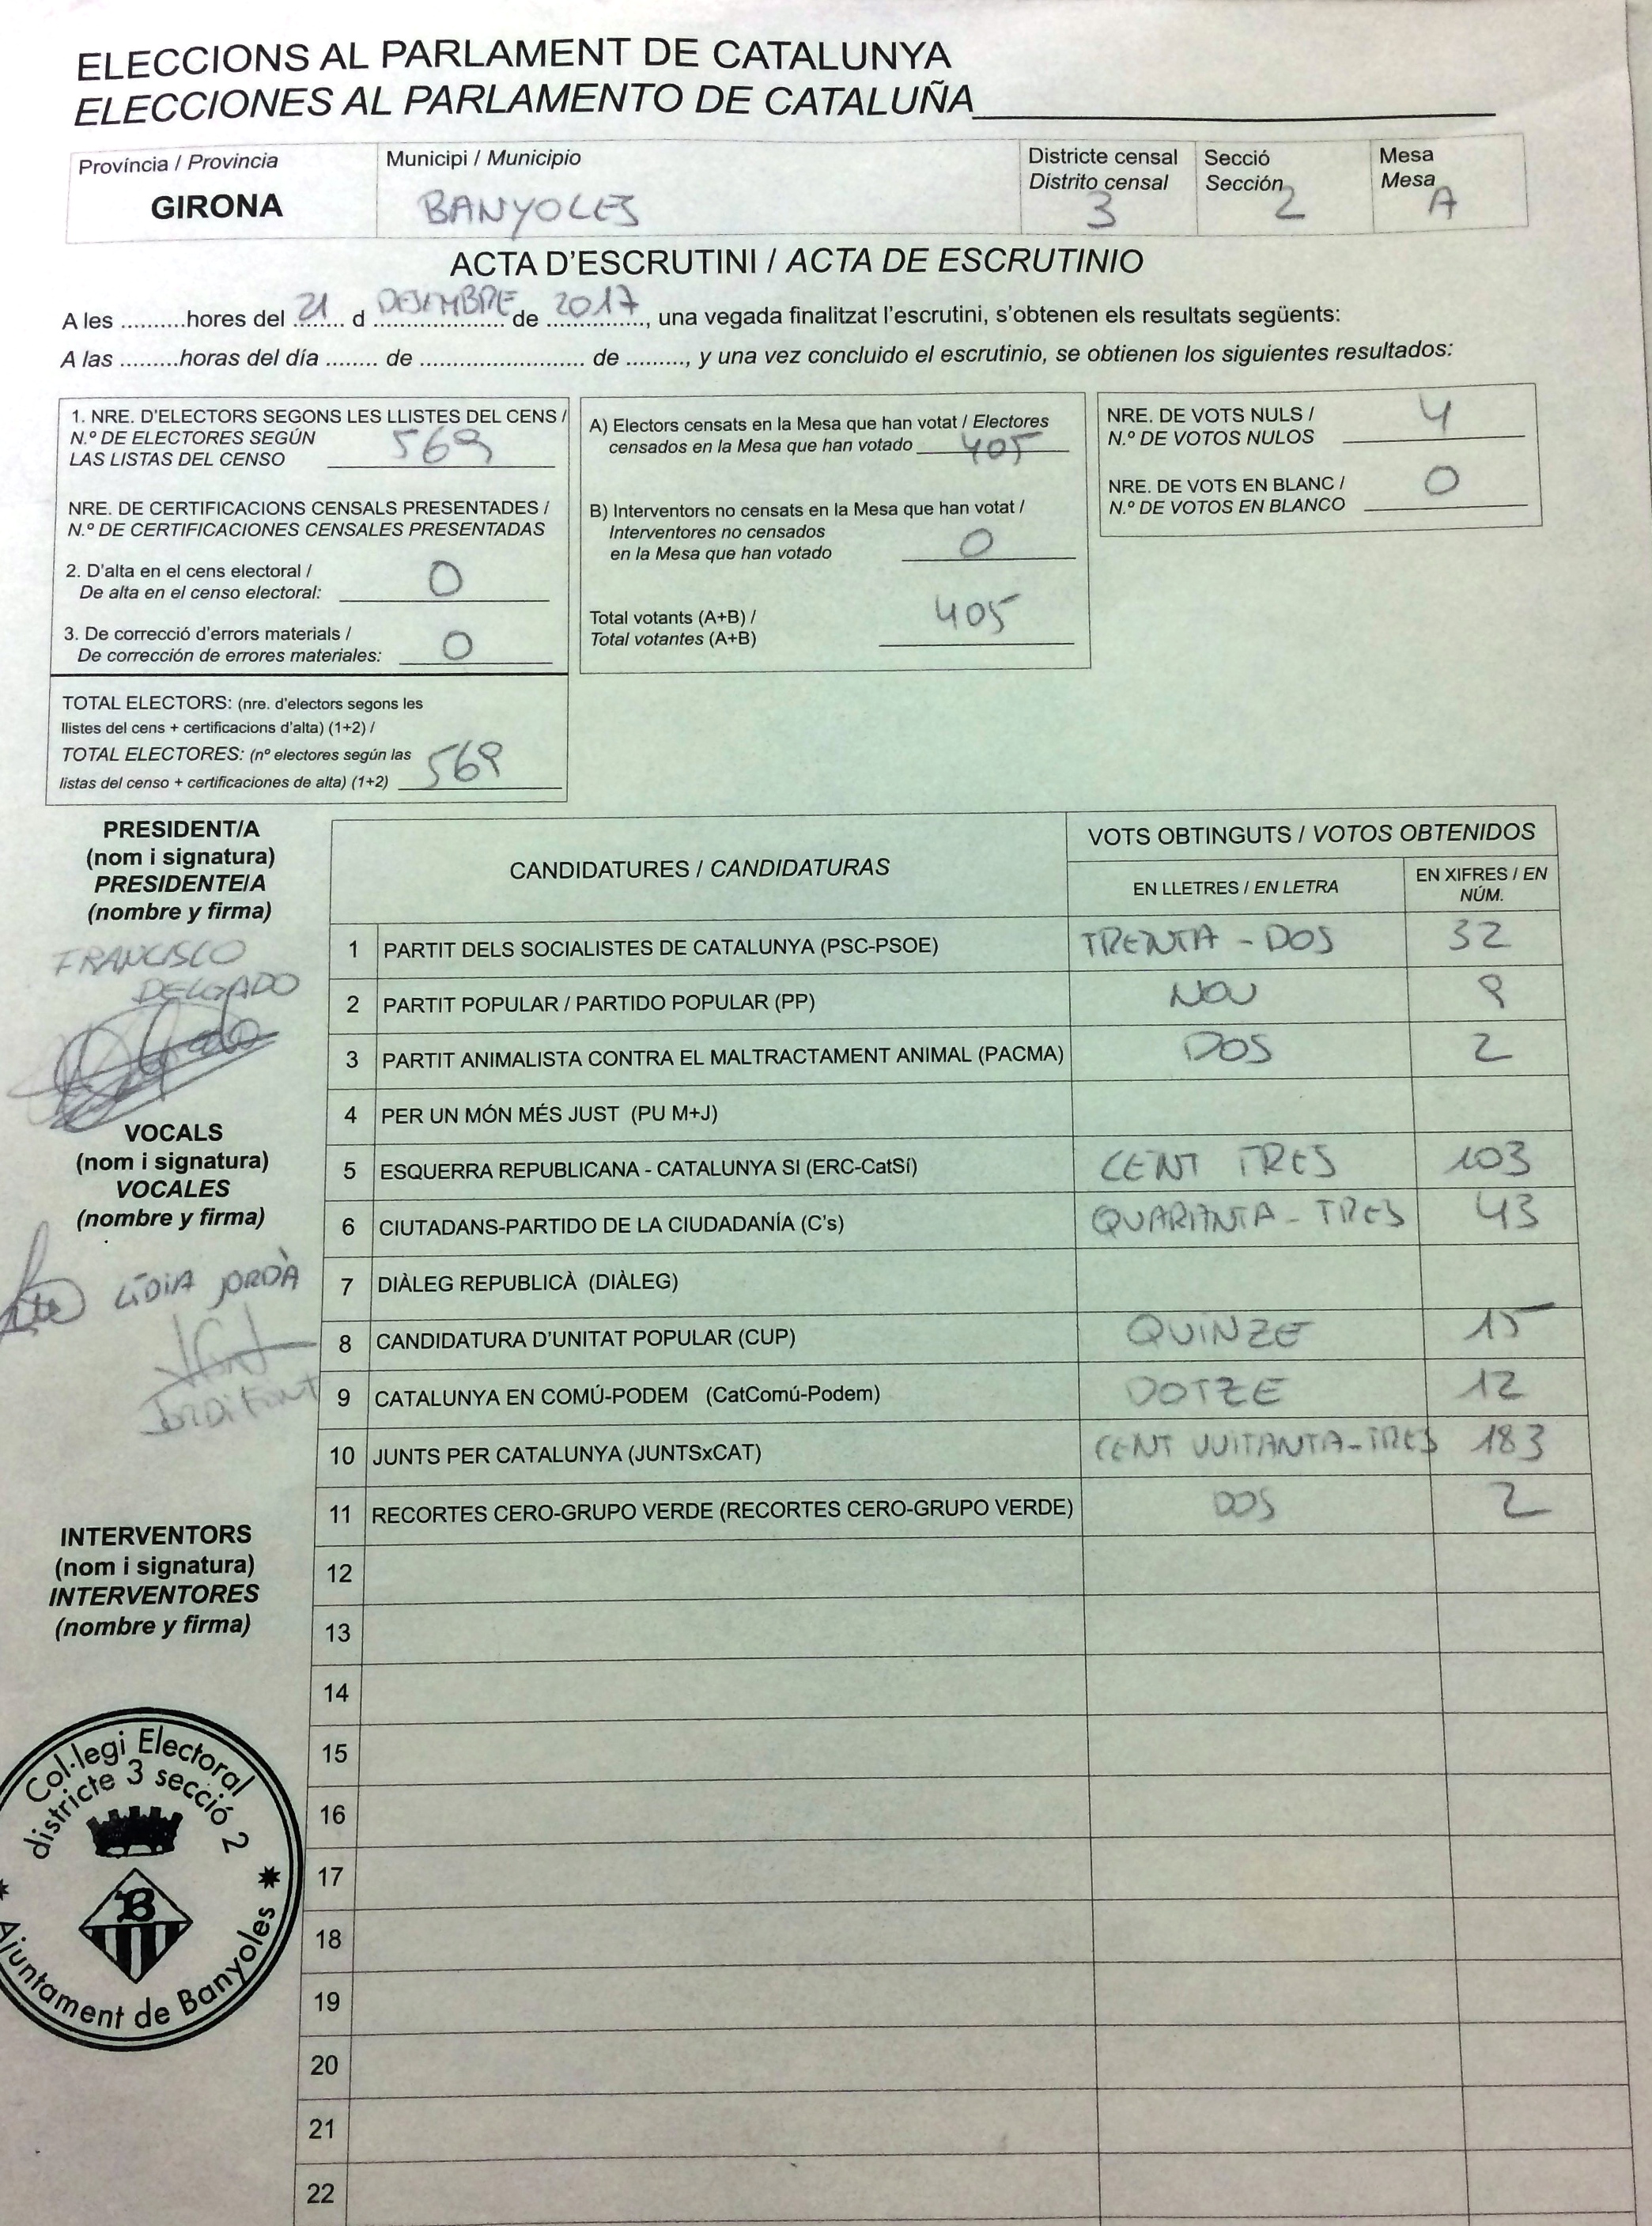 ELECCIONS AL PARLAMENT DE CATALUNYA
ELECCIONES AL PARLAMENTO DE CATALUÑA
Província / Provincia
GIRONA
Municipi / Municipio
BANYOLES
Districte censal
Distrito censal
3
Secció
Sección
2
Mesa
Mesa
A
ACTA D'ESCRUTINI / ACTA DE ESCRUTINIO
A les .........hores del 21 d DESEMBRE de 2017, una vegada finalitzat l'escrutini, s'obtenen els resultats següents:
A las .........horas del día ........ de ......................... de ........., y una vez concluido el escrutinio, se obtienen los siguientes resultados:
1. NRE. D'ELECTORS SEGONS LES LLISTES DEL CENS /
N.º DE ELECTORES SEGÚN
LAS LISTAS DEL CENSO 569
NRE. DE CERTIFICACIONS CENSALS PRESENTADES /
N.º DE CERTIFICACIONES CENSALES PRESENTADAS
2. D'alta en el cens electoral /
De alta en el censo electoral: 0
3. De correcció d'errors materials /
De corrección de errores materiales: 0
TOTAL ELECTORS: (nre. d'electors segons les
llistes del cens + certificacions d'alta) (1+2) /
TOTAL ELECTORES: (nº electores según las
listas del censo + certificaciones de alta) (1+2) 569
A) Electors censats en la Mesa que han votat / Electores
censados en la Mesa que han votado 405
B) Interventors no censats en la Mesa que han votat /
Interventores no censados
en la Mesa que han votado 0
Total votants (A+B) /
Total votantes (A+B) 405
NRE. DE VOTS NULS /
N.º DE VOTOS NULOS 4
NRE. DE VOTS EN BLANC /
N.º DE VOTOS EN BLANCO 0
PRESIDENT/A
(nom i signatura)
PRESIDENTE/A
(nombre y firma)
FRANCISCO
DELGADO
VOCALS
(nom i signatura)
VOCALES
(nombre y firma)
LÍDIA JORDÀ
Jordi Font
INTERVENTORS
(nom i signatura)
INTERVENTORES
(nombre y firma)
Col·legi Electoral
districte 3 secció 2
B
Ajuntament de Banyoles
CANDIDATURES / CANDIDATURAS
VOTS OBTINGUTS / VOTOS OBTENIDOS
EN LLETRES / EN LETRA
EN XIFRES / EN
NÚM.
1 PARTIT DELS SOCIALISTES DE CATALUNYA (PSC-PSOE) TRENTA - DOS 32
2 PARTIT POPULAR / PARTIDO POPULAR (PP) NOU 9
3 PARTIT ANIMALISTA CONTRA EL MALTRACTAMENT ANIMAL (PACMA) DOS 2
4 PER UN MÓN MÉS JUST (PU M+J)
5 ESQUERRA REPUBLICANA - CATALUNYA SI (ERC-CatSí) CENT TRES 103
6 CIUTADANS-PARTIDO DE LA CIUDADANÍA (C's) QUARANTA - TRES 43
7 DIÀLEG REPUBLICÀ (DIÀLEG)
8 CANDIDATURA D'UNITAT POPULAR (CUP) QUINZE 15
9 CATALUNYA EN COMÚ-PODEM (CatComú-Podem) DOTZE 12
10 JUNTS PER CATALUNYA (JUNTSxCAT) CENT VUITANTA-TRES 183
11 RECORTES CERO-GRUPO VERDE (RECORTES CERO-GRUPO VERDE) DOS 2
12
13
14
15
16
17
18
19
20
21
22